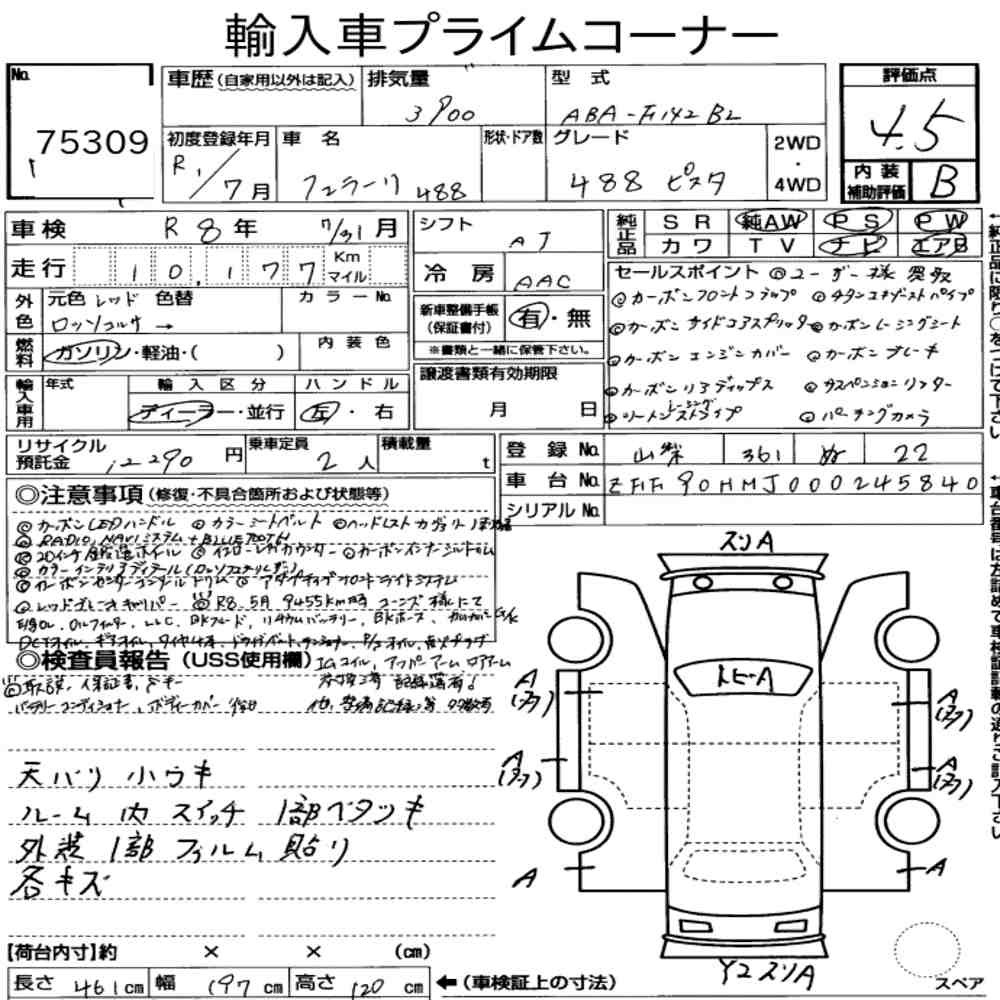 輸入車プライムコーナー
No.
75309
車歴 (自家用以外は記入)
排気量
3900
型式
ABA-F142BL
評価点
4.5
初度登録年月
R1/7月
車名
フェラーリ 488
形状・ドア数
グレード
488 ピスタ
2WD
・
4WD
内装
補助評価
B
車検
R 8年 7/31月
シフト
AT
純正品
SR 純AW PS PW
カワ TV ナビ エアB
走行
10,177
Km
マイル
冷房
AAC
外色
元色 レッド 色替
ロッソコルサ →
カラーNo.
新車整備手帳
(保証書付)
有・無
※書類と一緒に保管下さい。
燃料
ガソリン・軽油・( )
内装色
輸入車用
年式
輸入区分
ディーラー・並行
ハンドル
左・右
譲渡書類有効期限
月 日
セールスポイント ◎ユーザー様買取
◎カーボンフロントフラップ ◎チタンエキゾーストパイプ
◎カーボンサイドエアスプリッター ◎カーボンレーシングシート
◎カーボンエンジンカバー ◎カーボンブレーキ
◎カーボンリアディップス ◎サスペンションリフター
◎ツートンレーシングストライプ ◎パーキングカメラ
リサイクル
預託金
12290円
乗車定員
2人
積載量
t
登録No.
山梨 361 ぬ 22
車台No.
ZFFF90HMJ000245840
シリアルNo.
◎注意事項 (修復・不具合箇所および状態等)
◎カーボンLEDハンドル ◎カラーシートベルト ◎ヘッドレストカヴァリーノ刺繍
◎RADIO,NAVIシステム+BLUETOOTH
◎20インチ鍛造ホイール ◎イエローレヴカウンター ◎カーボンインナーシルトリム
◎カラーインテリアディテール(ロッソフェラーリ)
◎カーボンセンターコンソールトリム ◎アダプティブフロントライトシステム
◎レッドブレーキキャリパー R8.5月 9455km時 コーンズ様にて
OIL,OILフィルター,LLC,BKフルード,リチウムバッテリー,BKホース
DCTオイル,ギアオイル,タイヤ4本,ドライブベルト,テンショナー,P/Sオイル,点火プラグ
◎検査員報告 (USS使用欄)
IGコイル,アッパーアーム ロアアーム
取説,保証書,スペアキー
バッテリーコンディショナー,ボディーカバー付
他,整備記録簿多数有
天バリ小ウキ
ルーム内スイッチ1部ベタツキ
外装1部フィルム貼り
各キズ
【荷台内寸】約 × × (cm)
長さ 461 cm 幅 197 cm 高さ 120 cm
←(車検証上の寸法)
スリA
トビーA
A
(タフ)
A
(タフ)
A
(タフ)
A
(タフ)
A
A
Y2スリA
スペア